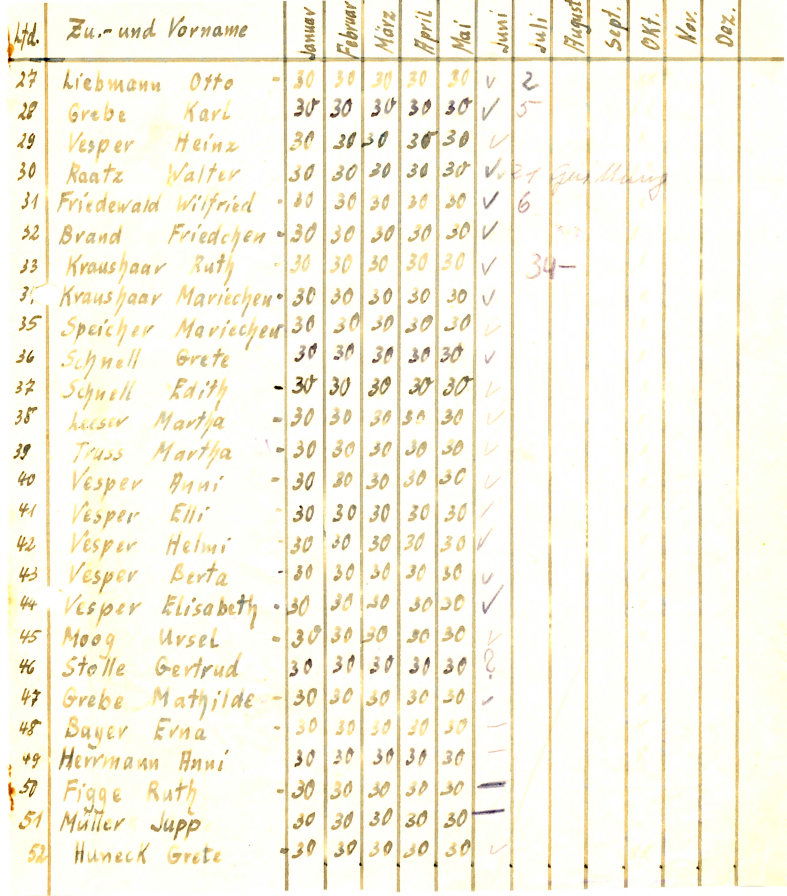 Lfd. Zu.- und Vorname Januar Februar März April Mai Juni Juli August Sept. Okt. Nov. Dez.
27 Liebmann Otto - 30 30 30 30 30 ✓ 2
28 Grebe Karl 30 30 30 30 30 ✓ 5
29 Vesper Heinz 30 30 30 30 30 ✓
30 Raatz Walter 30 30 30 30 30 ✓
31 Friedewald Wilfried - 30 30 30 30 30 ✓ 6
32 Brand Friedchen - 30 30 30 30 30 ✓
33 Kraushaar Ruth - 30 30 30 30 30 ✓ 34-
Kraushaar Mariechen - 30 30 30 30 30 ✓
35 Speicher Mariechen 30 30 30 30 30 ✓
36 Schnell Grete 30 30 30 30 30 ✓
37 Schnell Edith - 30 30 30 30 30 ✓
38 Leeser Martha - 30 30 30 30 30 ✓
39 Truss Martha - 30 30 30 30 30 ✓
40 Vesper Anni - 30 30 30 30 30 ✓
41 Vesper Elli 30 30 30 30 30 ✓
42 Vesper Helmi - 30 30 30 30 30 ✓
43 Vesper Berta - 30 30 30 30 30 ✓
44 Vesper Elisabeth - 30 30 30 30 30 ✓
45 Moog Ursel - 30 30 30 30 30 ✓
46 Stolle Gertrud 30 30 30 30 30 ?
47 Grebe Mathilde - 30 30 30 30 30 ✓
48 Bayer Erna - 30 30 30 30 30 -
49 Herrmann Anni 30 30 30 30 30 -
50 Figge Ruth - 30 30 30 30 30 -
51 Müller Jupp 30 30 30 30 30 -
52 Huneck Grete - 30 30 30 30 30 ✓